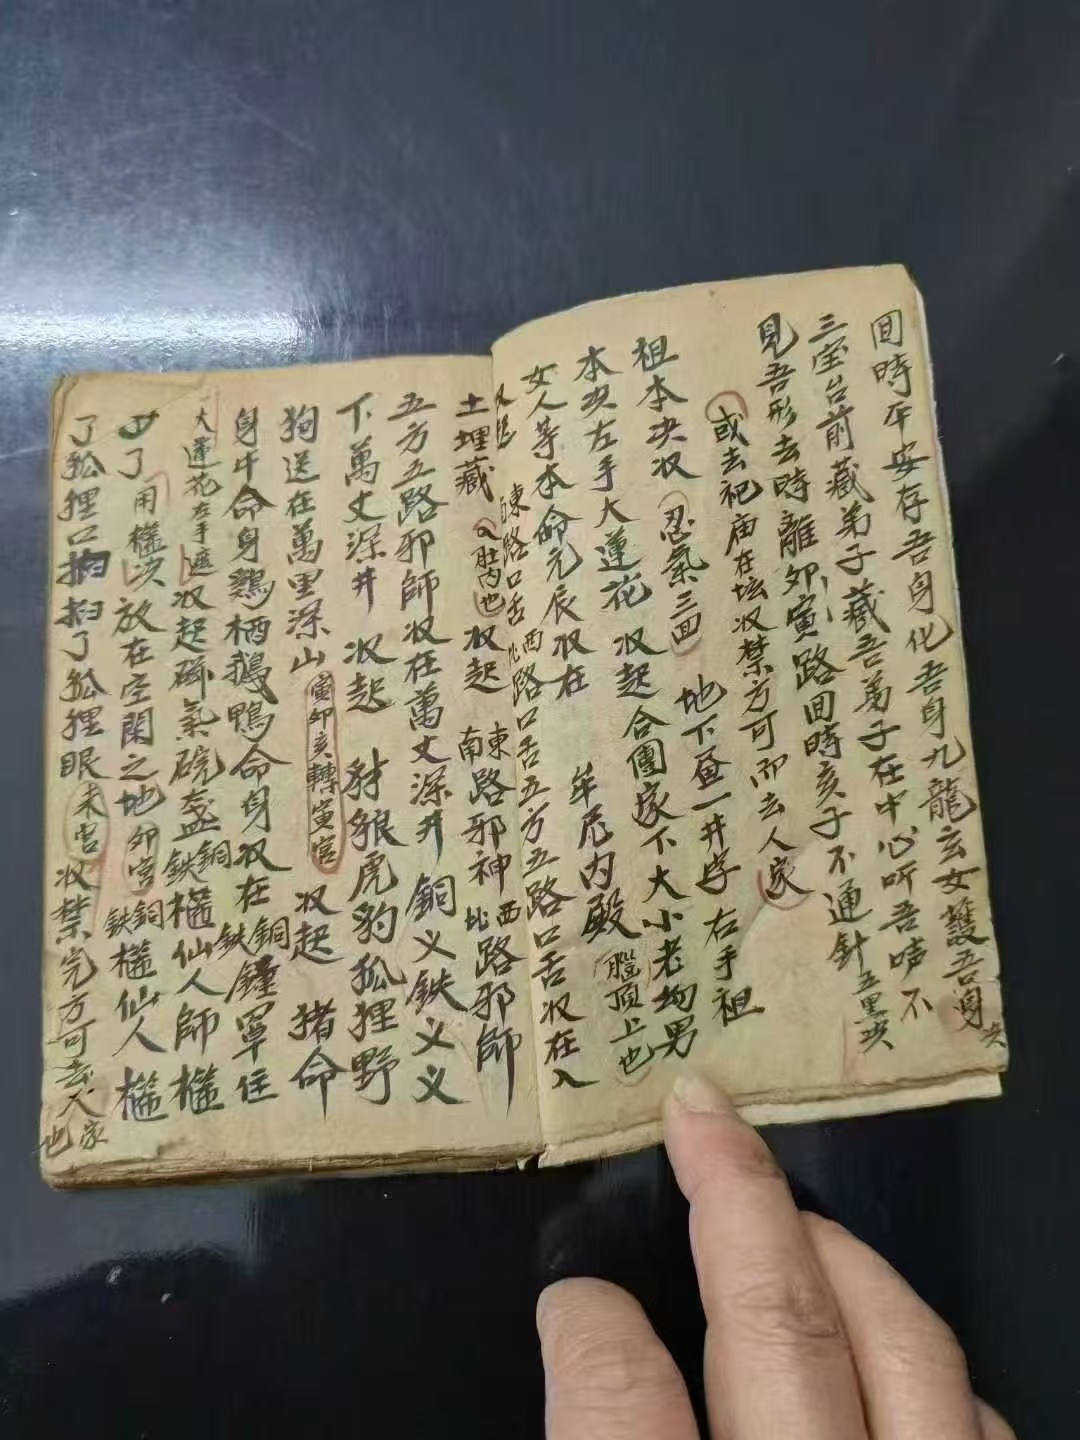 囬時平安存吾身化吾身九龍玄女護吾身决
三宝台前藏弟子藏吾弟子在中心听吾唪不
見吾形去時離卯寅路囬時亥子不通針五黑决
或去祀庙在坛收禁方可而去人家
地下昼一井字 右手祖
祖本决收 忍氣三囬
本决左手大蓮花 收起合團家下大小老幼男
女人等本命元辰收在 牟尼内殿 腔頂上也
收起 東南路口舌 西北路口舌五方五路口舌收在入
土埋藏 入肚内也 收起 東南路邪神 西北路邪師
五方五路邪師收在萬丈深井 銅义鉄义义
下萬丈深井 收起 豺狼虎豹狐狸野
狗送在萬里深山 寅卯亥轉寅宫 收起 猪命
身牛命身鷄栖鵝鴨命身收在銅鉄鐘罩住
大蓮花左手遮收起 氣碗盏銅鉄槛仙人師槛
了 用槛决放在空閑之地 卯宫 銅鉄槛仙人槛
了狐狸口 拍了狐狸眼 未宫 收禁完方可去人家也